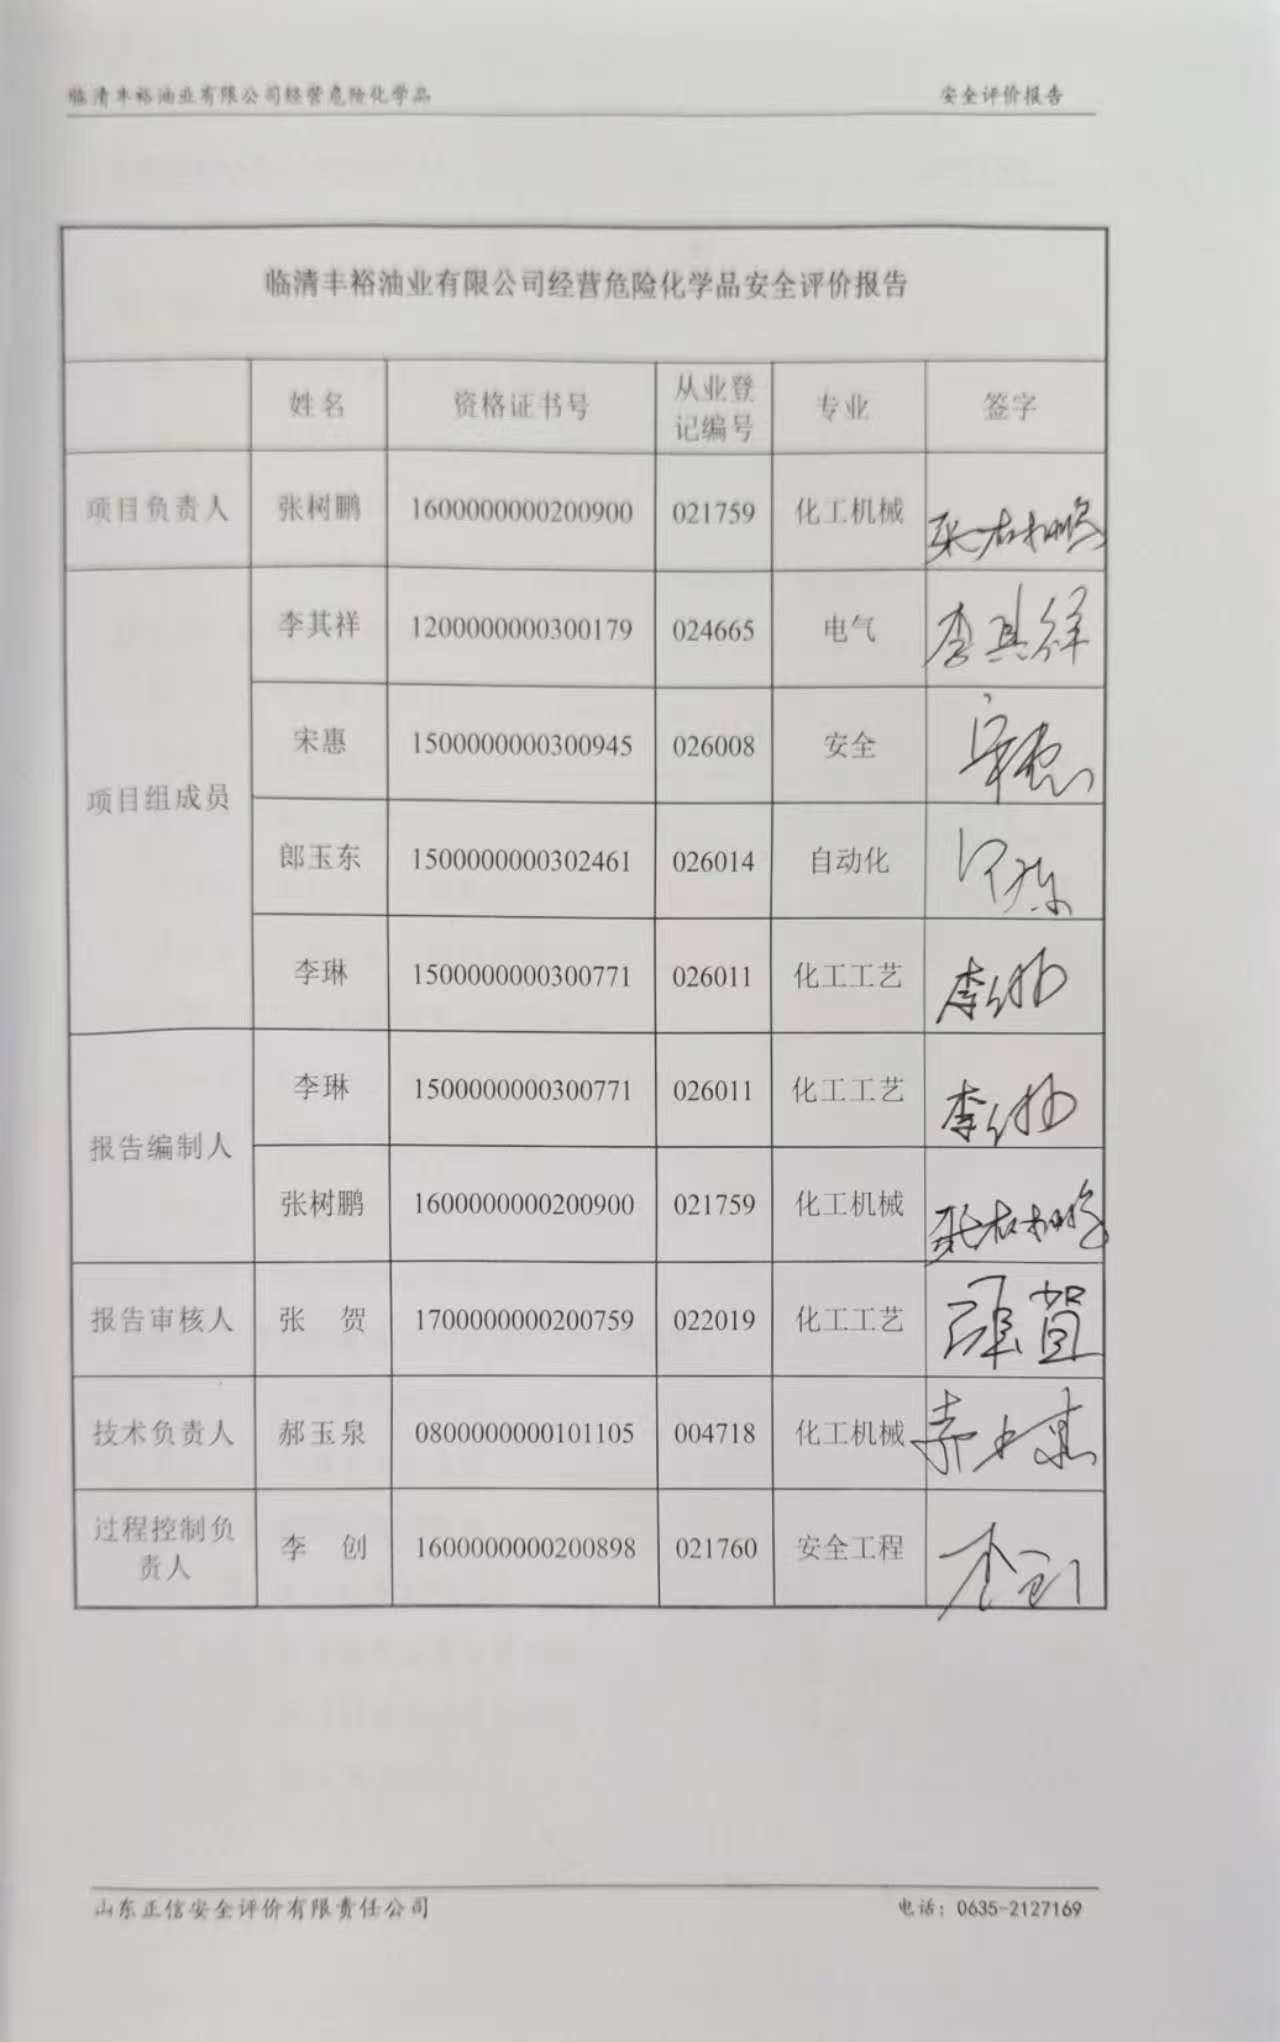 临清丰裕油业有限公司经营危险化学品 安全评价报告
临清丰裕油业有限公司经营危险化学品安全评价报告
姓名 资格证书号 从业登记编号 专业 签字
项目负责人 张树鹏 1600000000200900 021759 化工机械 张树鹏
项目组成员 李其祥 1200000000300179 024665 电气 李其祥
宋惠 1500000000300945 026008 安全 宋惠
郎玉东 1500000000302461 026014 自动化
李琳 1500000000300771 026011 化工工艺 李琳
报告编制人 李琳 1500000000300771 026011 化工工艺 李琳
张树鹏 1600000000200900 021759 化工机械 张树鹏
报告审核人 张 贺 1700000000200759 022019 化工工艺 张贺
技术负责人 郝玉泉 0800000000101105 004718 化工机械 郝玉泉
过程控制负责人 李 创 1600000000200898 021760 安全工程 李创
山东正信安全评价有限责任公司 电话：0635-2127169